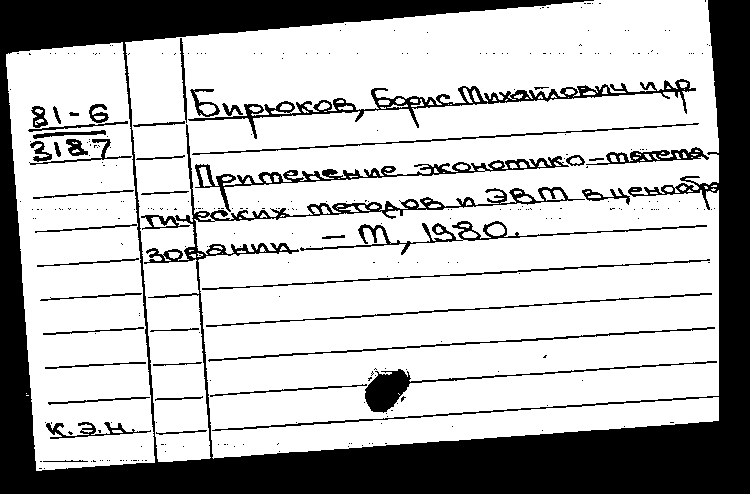 81-6
3187
Бирюков, Борис Михайлович и др
Применение экономико-матема-
тических методов и ЭВМ в ценообра
зовании. - М., 1980.
к.э.н.